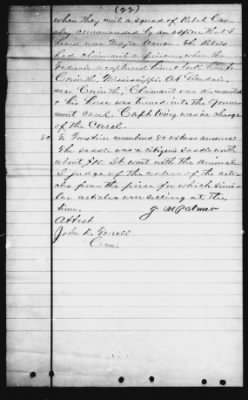 (22)
when they met a squad of Rebel Cav-
alry commanded by an officer that I
heard was Major Amon. The Rebels
had claimant a prisoner, when the
Federals captured him & took him to
Corinth, Mississippi. At
near Corinth, Claimant was dismounted
& his horse was turned into the Govern-
ment Capt Ewing was in charge
of the Corral.
To Question numbered 30 witness answered
The saddle was a citizens saddle worth
about $10. It went with the animal.
I judge of the values of the arti-
cles from the prices for which simi-
lar articles were selling at the
time.
J. M. Palmer
Attest
John R.
Com.